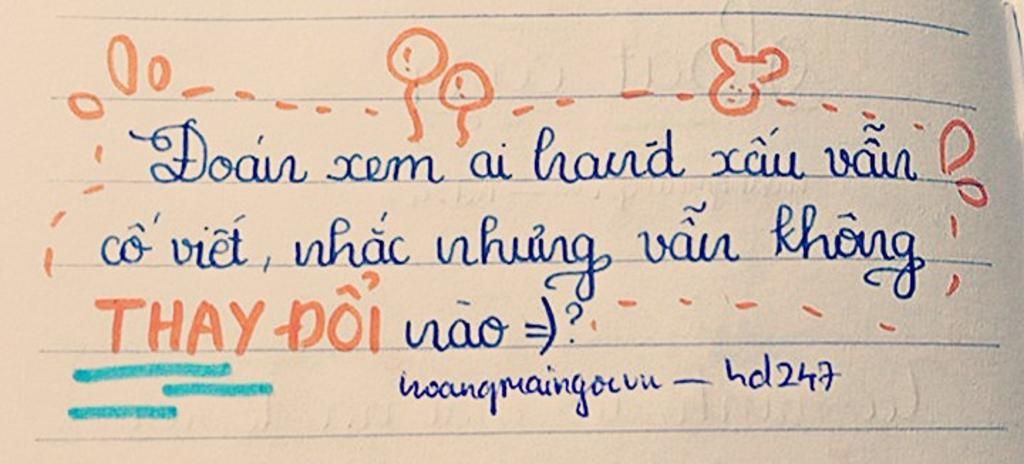 Đoán xem ai hand xấu vẫn
cố viết, nhắc nhưng vẫn không
THAY ĐỔI nào =)?
hoangmaingocvu - hd247